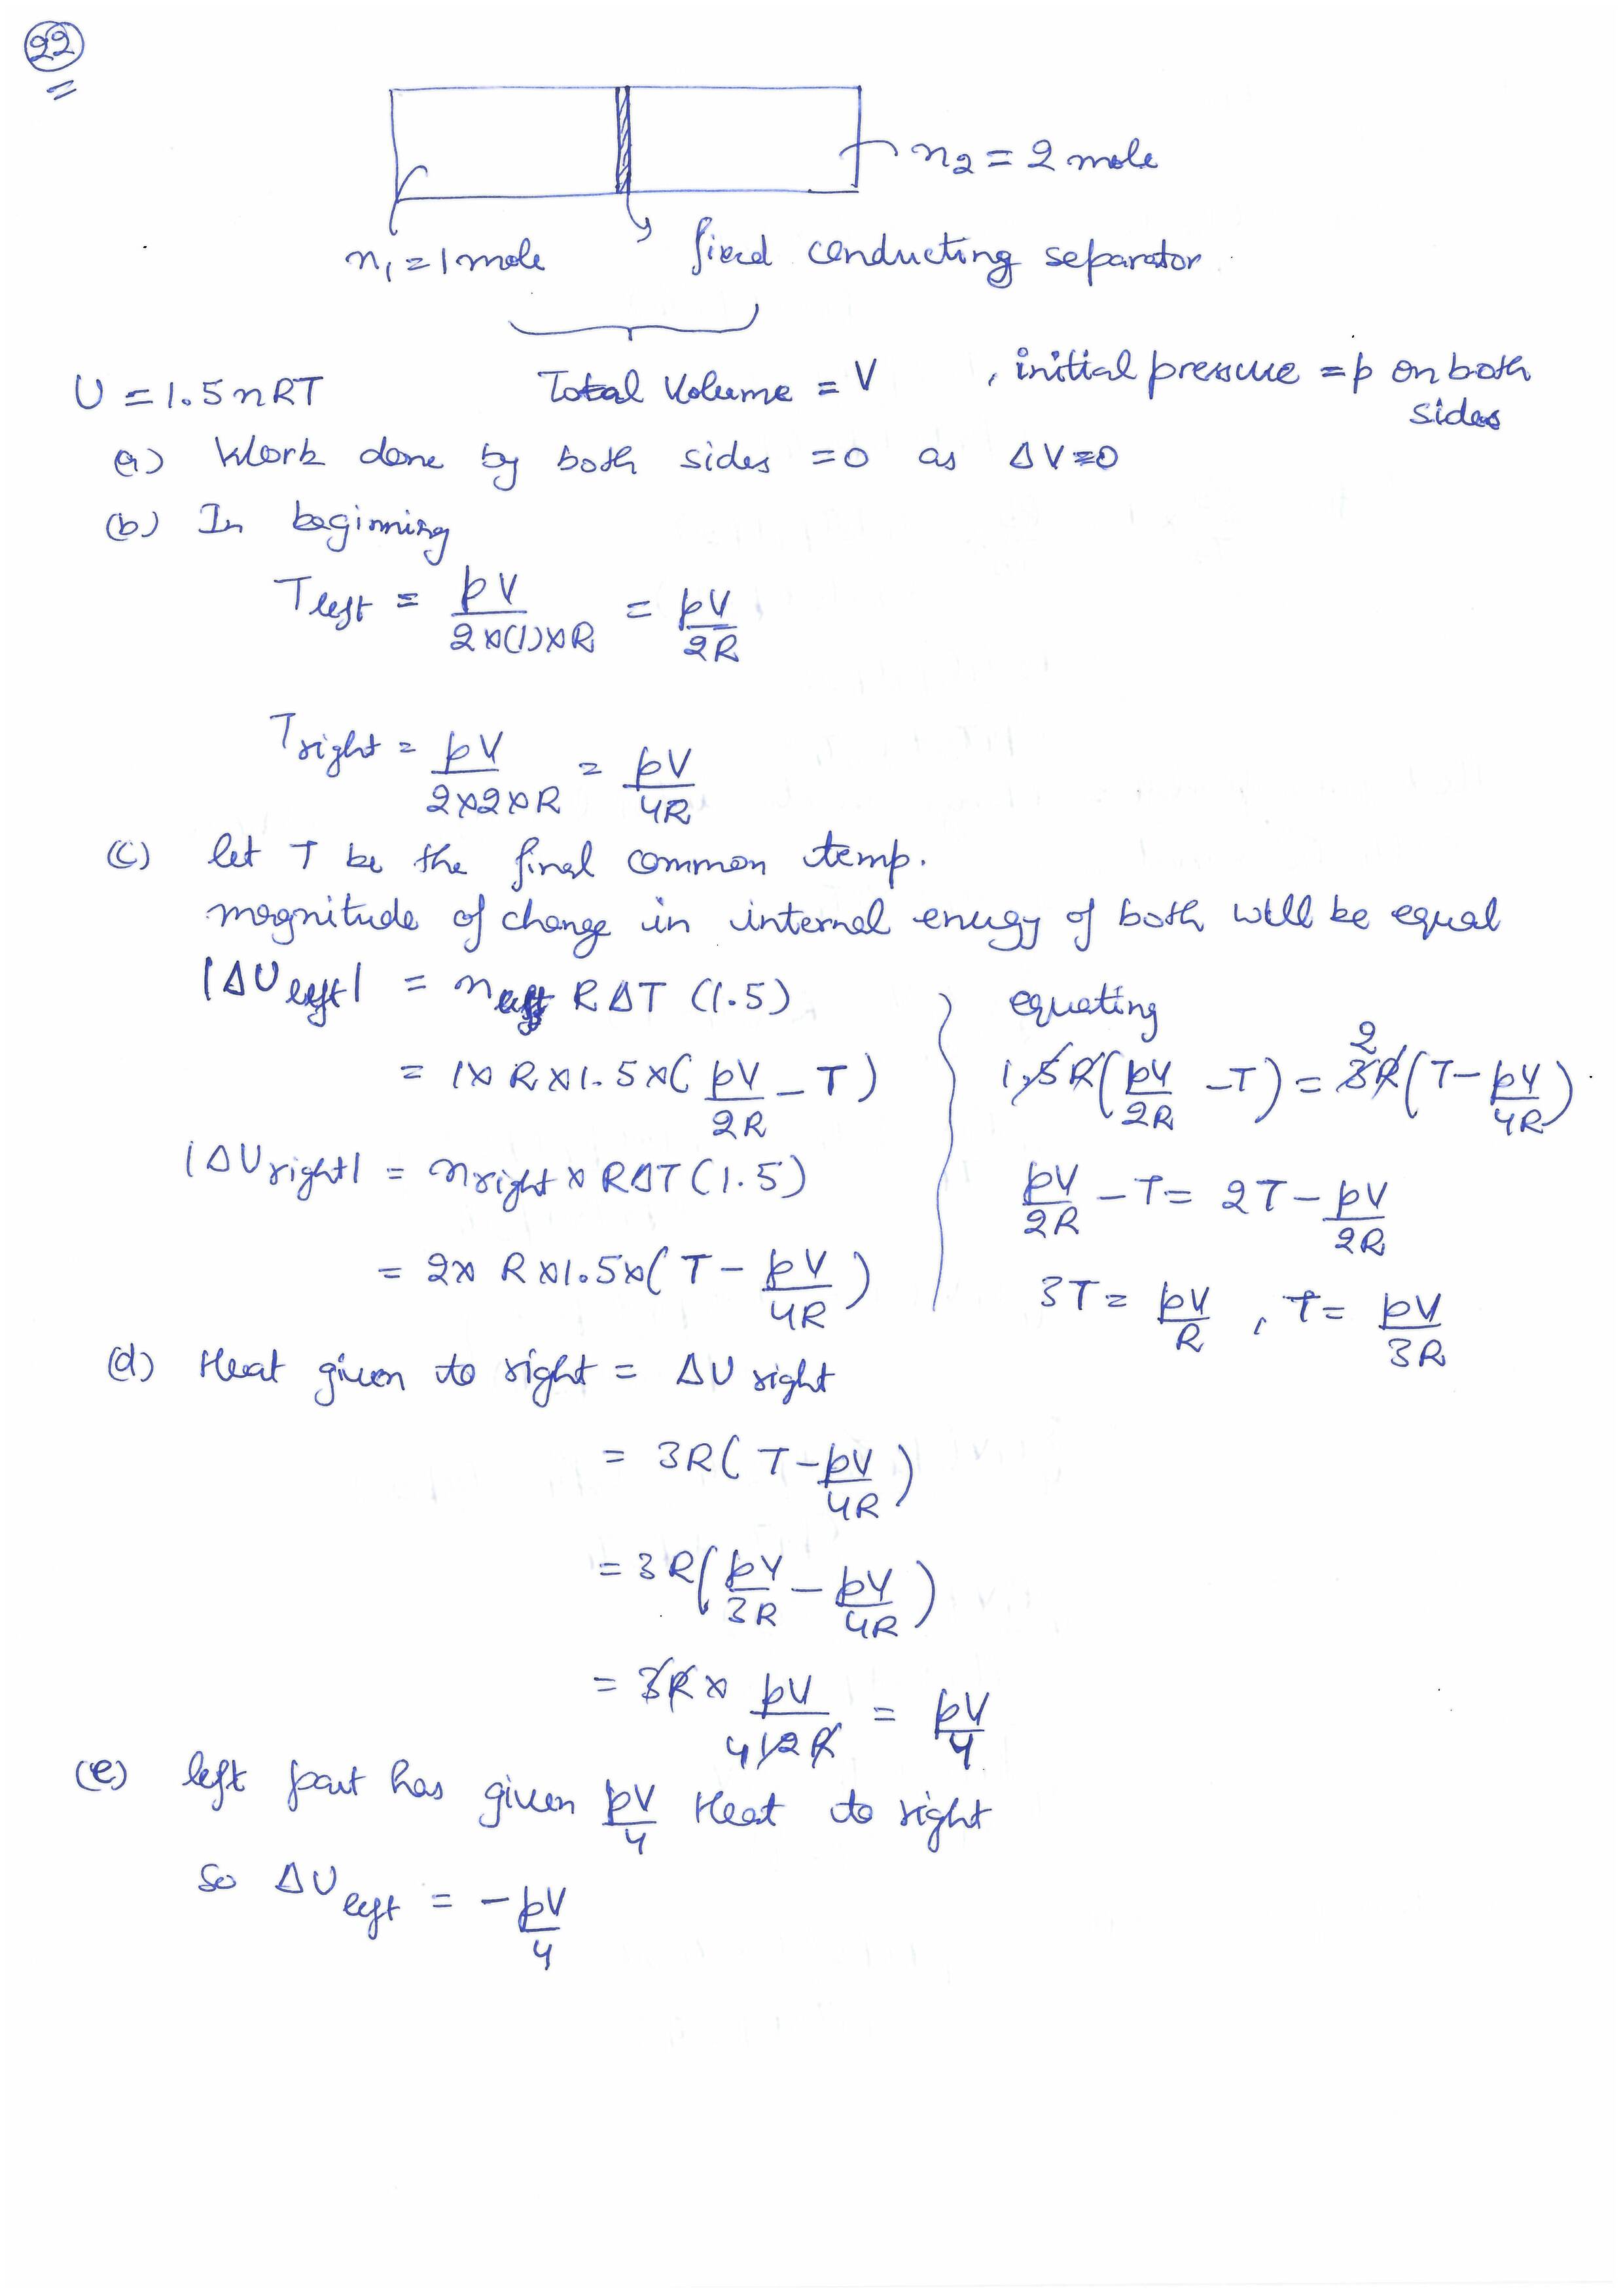 22
n₂ = 2 mole
n₁ = 1 mole
fixed conducting separator
U = 1.5nRT
Total Volume = V , initial pressure = p on both sides
(a) Work done by both sides = 0 as ΔV=0
(b) In beginning
T left = pV/(2×(1)×R) = pV/2R
T right = pV/(2×2×R) = pV/4R
(c) let T be the final common temp.
magnitude of change in internal energy of both will be equal
|ΔU left| = n left RΔT (1.5)
= 1× R×1.5×( pV/2R - T )
|ΔU right| = n right × RΔT (1.5)
= 2× R×1.5×( T - pV/4R )
equating
1.5R( pV/2R - T ) = 3R 2 ( T - pV/4R )
pV/2R - T = 2T - pV/2R
3T = pV/R , T = pV/3R
(d) Heat given to right = ΔU right
= 3R( T - pV/4R )
= 3R( pV/3R - pV/4R )
= 3R × pV/4 12R = pV/4
(e) left part has given pV/4 Heat to right
So ΔU left = - pV/4